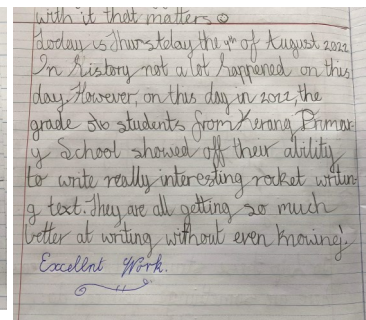 with it that matters☺
Today is Thurstday the 4th of August 2022
In history not a lot happened on this
day. However, on this day in 2022, the
grade 5/6 students from Kerang Primar-
y School showed off their ability
to write really interesting rocket writin-
g text. They are all getting so much
better at writing without even knowing!
Excellent Work.